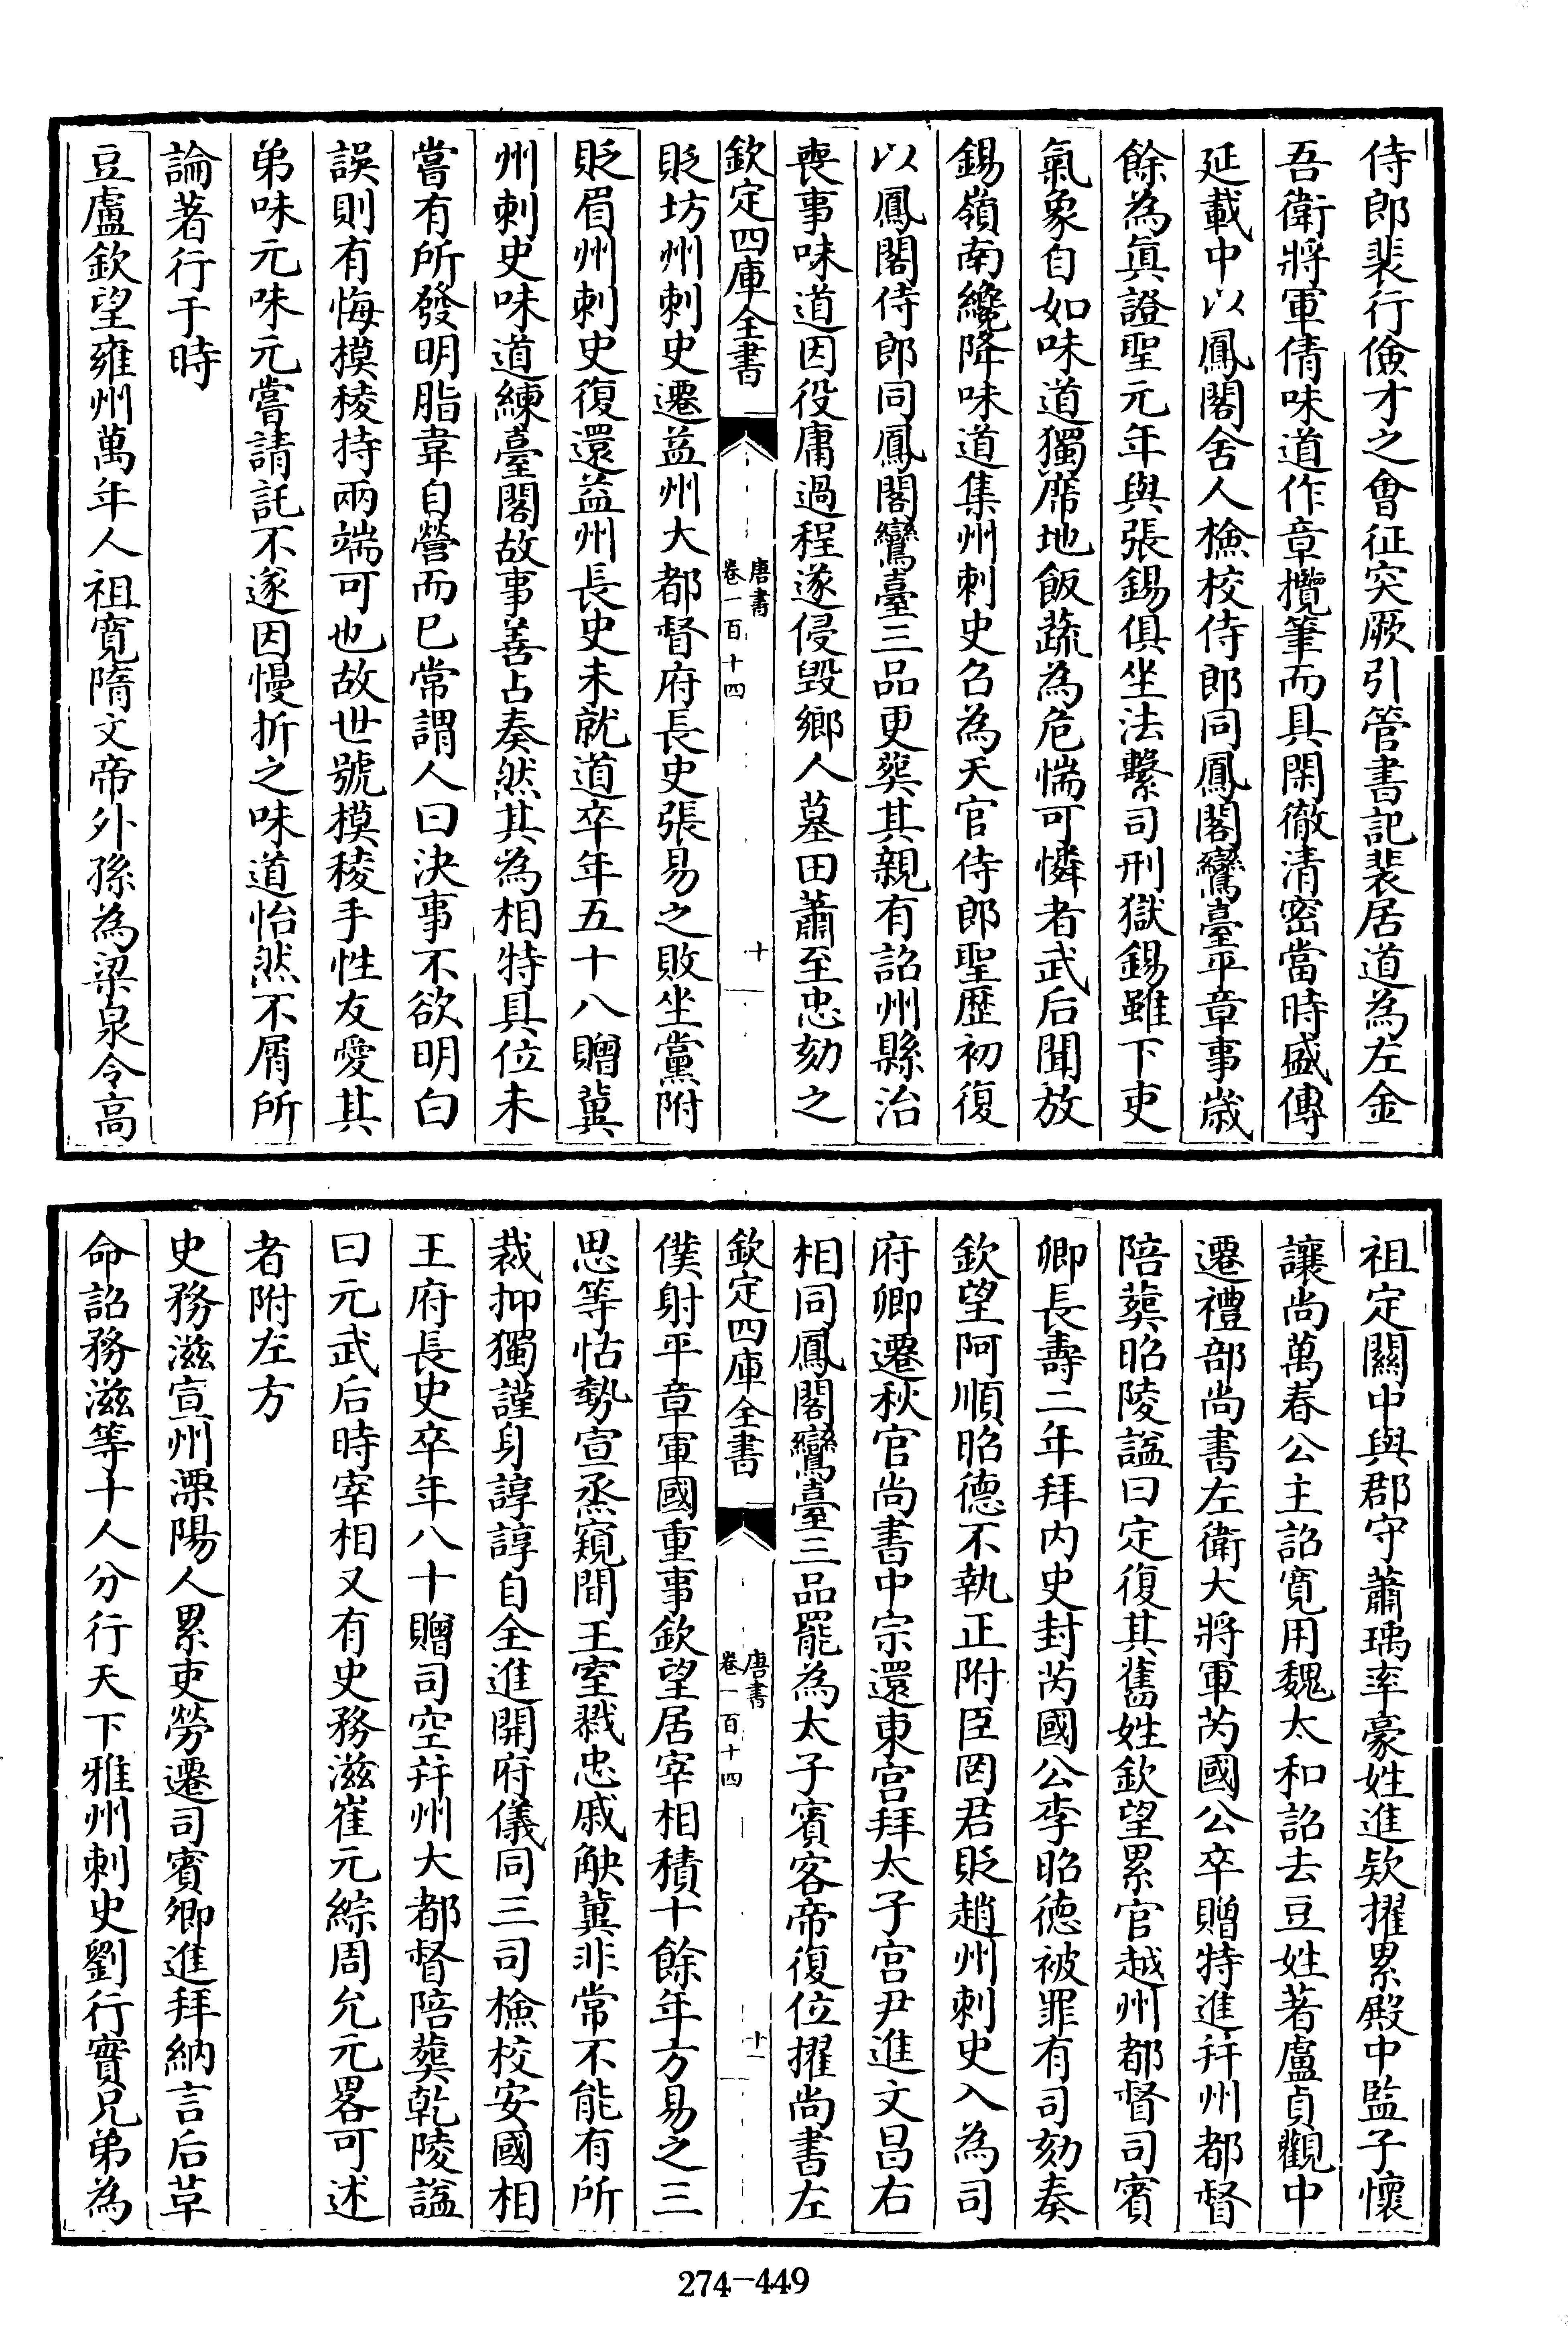 侍郎裴行儉才之會征突厥引管書記裴居道為左金
吾衛將軍倩味道作章攬筆而具閑徹清密當時盛傳
延載中以鳳閣舍人檢校侍郎同鳳閣鸞臺平章事歲
餘為真證聖元年與張錫俱坐法繫司刑獄錫雖下吏
氣象自如味道獨席地飯蔬為危惴可憐者武后聞放
錫嶺南纔降味道集州刺史召為天官侍郎聖歷初復
以鳳閣侍郎同鳳閣鸞臺三品更葬其親有詔州縣治
喪事味道因役庸過程遂侵毀鄉人墓田蕭至忠劾之
欽定四庫全書
唐書
卷一百十四
十
貶坊州刺史遷益州大都督府長史張易之敗坐黨附
貶眉州刺史復還益州長史未就道卒年五十八贈冀
州刺史味道練臺閣故事善占奏然其為相特具位未
嘗有所發明脂韋自營而已常謂人曰決事不欲明白
誤則有悔模稜持兩端可也故世號模稜手性友愛其
弟味元味元嘗請託不遂因慢折之味道怡然不屑所
論著行于時
豆盧欽望雍州萬年人祖寛隋文帝外孫為梁泉令高
祖定關中與郡守蕭瑀率豪姓進欵擢累殿中監子懷
讓尚萬春公主詔寛用魏太和詔去豆姓著盧貞觀中
遷禮部尚書左衛大將軍芮國公卒贈特進并州都督
陪葬昭陵諡曰定復其舊姓欽望累官越州都督司賓
卿長壽二年拜內史封芮國公李昭德被罪有司劾奏
欽望阿順昭德不執正附臣罔君貶趙州刺史入為司
府卿遷秋官尚書中宗還東宮拜太子宮尹進文昌右
相同鳳閣鸞臺三品罷為太子賓客帝復位擢尚書左
欽定四庫全書
唐書
卷一百十四
十一
僕射平章軍國重事欽望居宰相積十餘年方易之三
思等怙勢宣烝窺間王室戕忠戚觖冀非常不能有所
裁抑獨謹身諄諄自全進開府儀同三司檢校安國相
王府長史卒年八十贈司空并州大都督陪葬乾陵諡
曰元武后時宰相又有史務滋崔元綜周允元畧可述
者附左方
史務滋宣州溧陽人累吏勞遷司賓卿進拜納言后革
命詔務滋等十人分行天下雅州刺史劉行實兄弟為
274-449